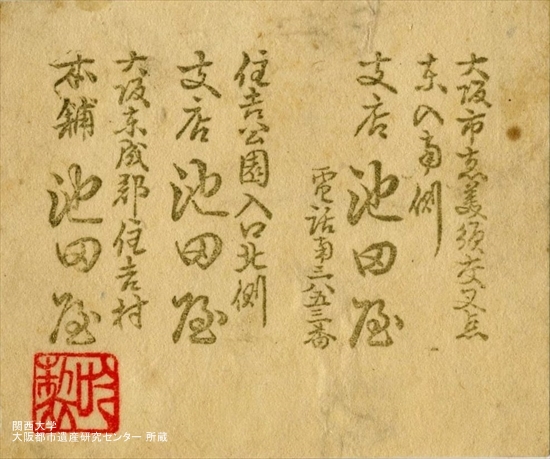 大阪市恵美須交叉点
東入南側
支店 池田屋
電話南三八五三番
住吉公園入口北側
支店 池田屋
大阪東成郡住吉村
本舗 池田屋
関西大学
大阪都市遺産研究センター 所蔵